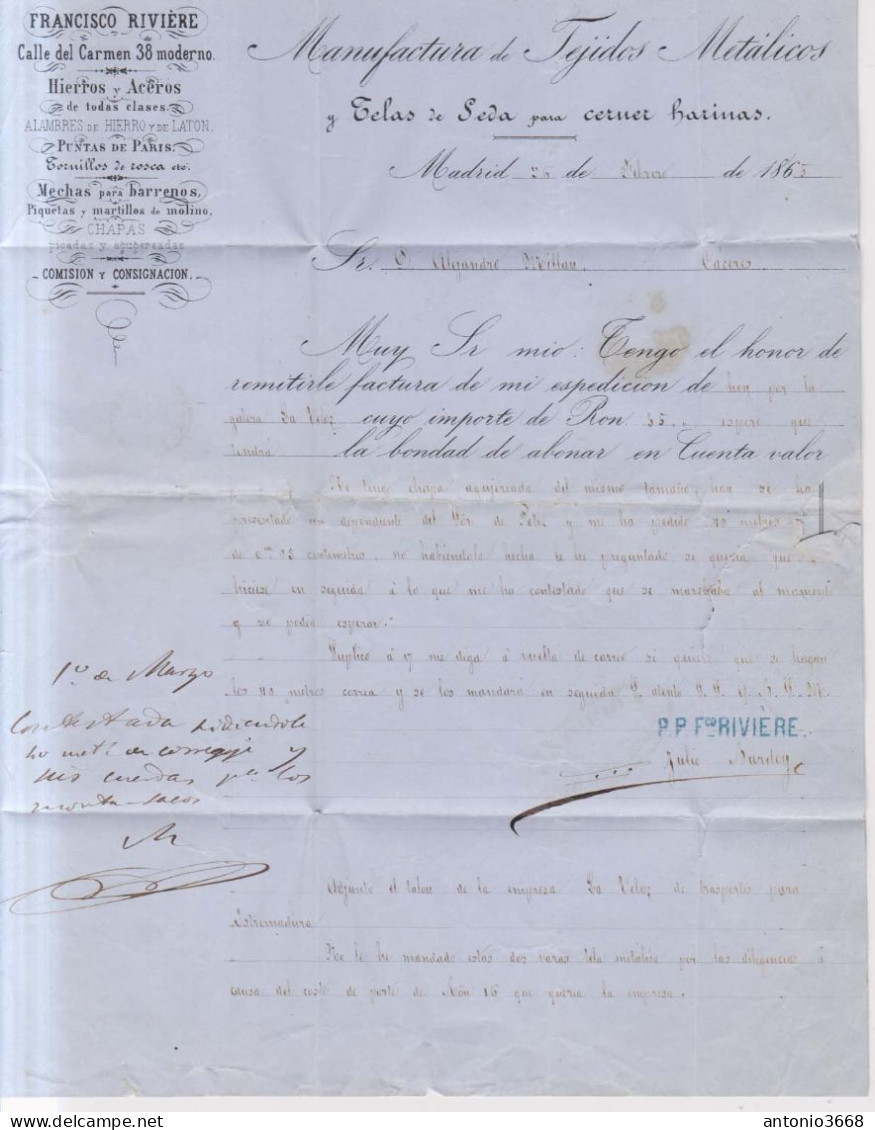 FRANCISCO RIVIÈRE
Calle del Carmen 38 moderno.
Hierros y Aceros
de todas clases.
ALAMBRES DE HIERRO Y DE LATON.
PUNTAS DE PARIS.
Tornillos de rosca etc.
Mechas para barrenos,
Piquetas y martillos de molino,
CHAPAS
picadas y agugereadas
COMISION Y CONSIGNACION.
Manufactura de Tejidos Metálicos
y Telas de Seda para cerner harinas.
Madrid 26 de Febrero de 1865
Sr. D. Alejandro Millan, Caceres
Muy Sr mio: Tengo el honor de
remitirle factura de mi espedicion de hoy por la
galera La Veloz cuyo importe de Ron. 35, espero que
tendrá la bondad de abonar en Cuenta valor
No tengo chapa agujereada del mismo tamaño; hoy se ha
presentado un dependiente del Sor. de y me ha pedido 10 metros
de 0m centimetros, no habiendola hecha le he preguntado si queria que
hiciese en seguida á lo que me ha contestado que se marchaba al momento
y no podia esperar.
Suplico á V me diga á vuelta de correo si quiere que se hagan
los 10 metros correa y se los mandará en seguida S. atento S. S. q. B. S. M.
P.P. Fco RIVIÈRE.
Julio
1º de Marzo
Contestada pidiendole
metl. de correage y
mis cuerdas pa. los
monta-sacos
M
Adjunto el talon de la empresa La Veloz de trasportes para
Estremadura
No le he mandado estas dos varas tela metálica por las diligencias á
causa del coste de porte de Ron 16 que queria la empresa.
antonio3668